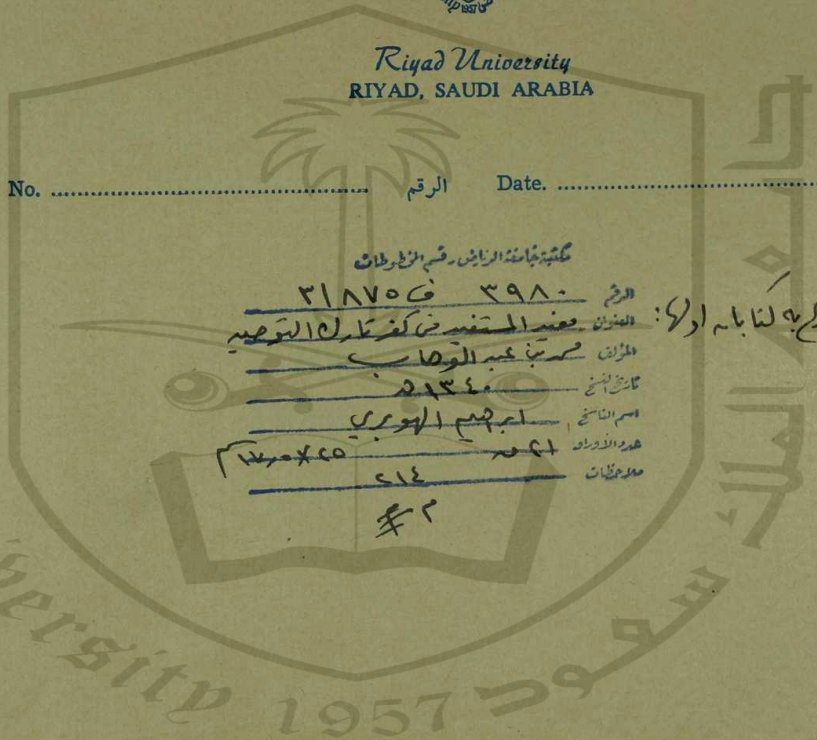 Riyad University
RIYAD, SAUDI ARABIA
No. الرقم Date.
مكتبة جامعة الرياض - قسم المخطوطات
الرقم ٣٩٨٠ ف ٣١٨٧٥
به كتابان اولها: العنوان مفيد المستفيد في كفر تارك التوحيد
المؤلف محمد بن عبد الوهاب
تاريخ النسخ ١٣٤٠ هـ
اسم الناسخ ابراهيم الهويري
عدد الأوراق ٢١ ق
ملاحظات ٢١٤
جامعة الملك سعود
University 1957